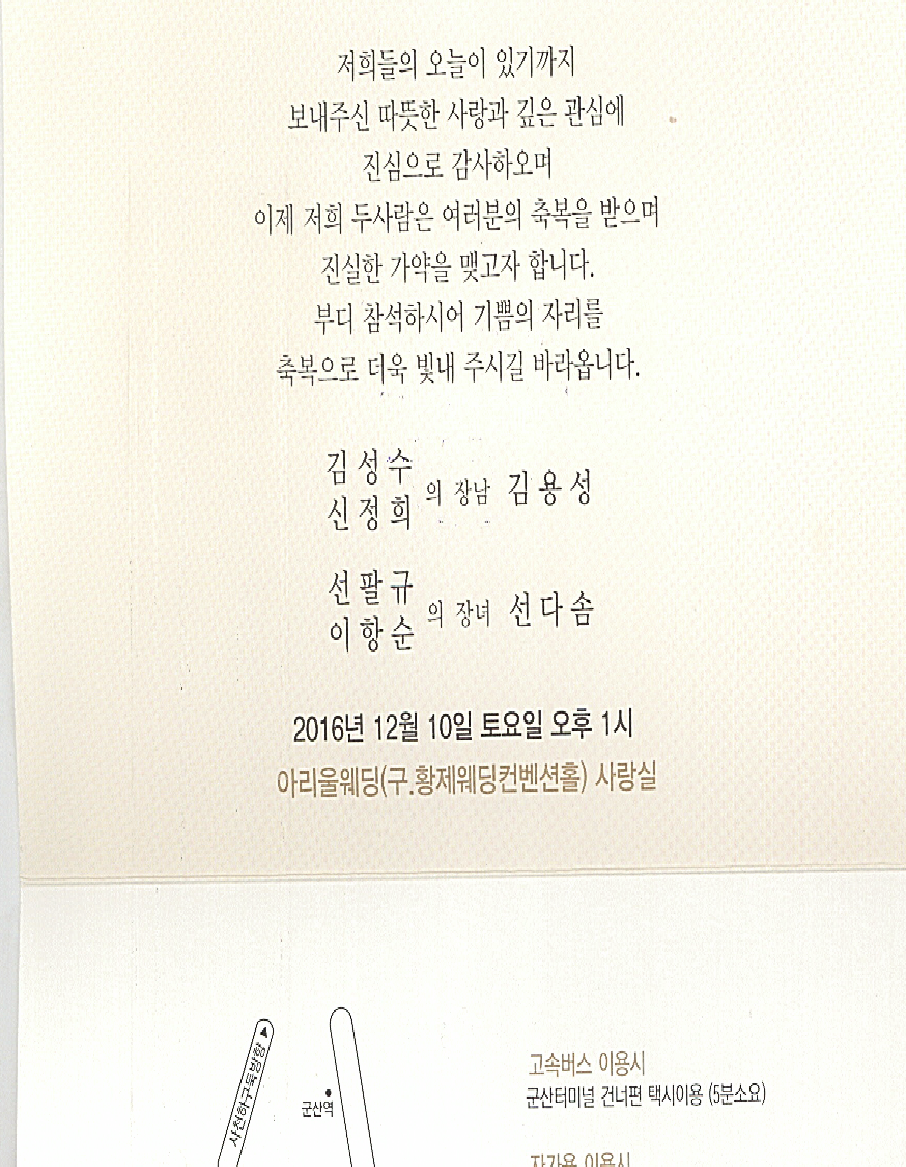 저희들의 오늘이 있기까지
보내주신 따뜻한 사랑과 깊은 관심에
진심으로 감사하오며
이제 저희 두사람은 여러분의 축복을 받으며
진실한 가약을 맺고자 합니다.
부디 참석하시어 기쁨의 자리를
축복으로 더욱 빛내 주시길 바라옵니다.
김성수
신정희
의 장남 김용성
선팔규
이항순
의 장녀 선다솜
2016년 12월 10일 토요일 오후 1시
아리울웨딩(구.황제웨딩컨벤션홀) 사랑실
고속버스 이용시
군산터미널 건너편 택시이용 (5분소요)
군산역
자가용 이용시